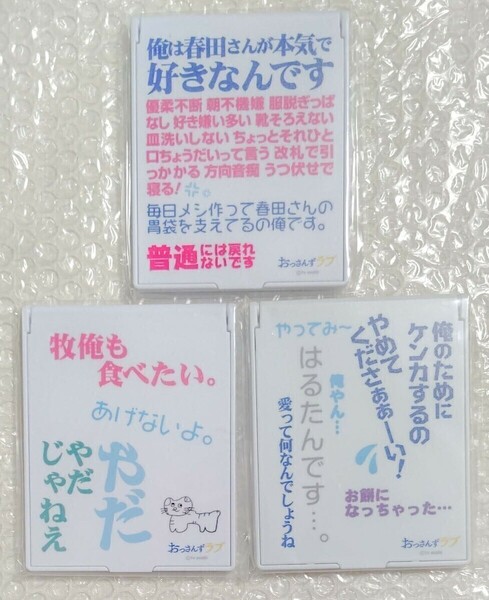 俺は春田さんが本気で
好きなんです
優柔不断 朝不機嫌 服脱ぎっぱ
なし 好き嫌い多い 靴そろえない
皿洗いしない ちょっとそれひと
口ちょうだいって言う 改札で引
っかかる 方向音痴 うつ伏せで
寝る!
毎日メシ作って春田さんの
胃袋を支えてるの俺です。
普通には戻れ
ないです
おっさんずラブ
牧俺も
食べたい。
あげないよ。
やだ
やだ
じゃねえ
おっさんずラブ
俺のために
ケンカするの
やめて
くださぁぁーい!
やってみ~
俺やん…
はるたんです…。
愛って何なんでしょうね
お餅に
なっちゃった…
おっさんずラブ